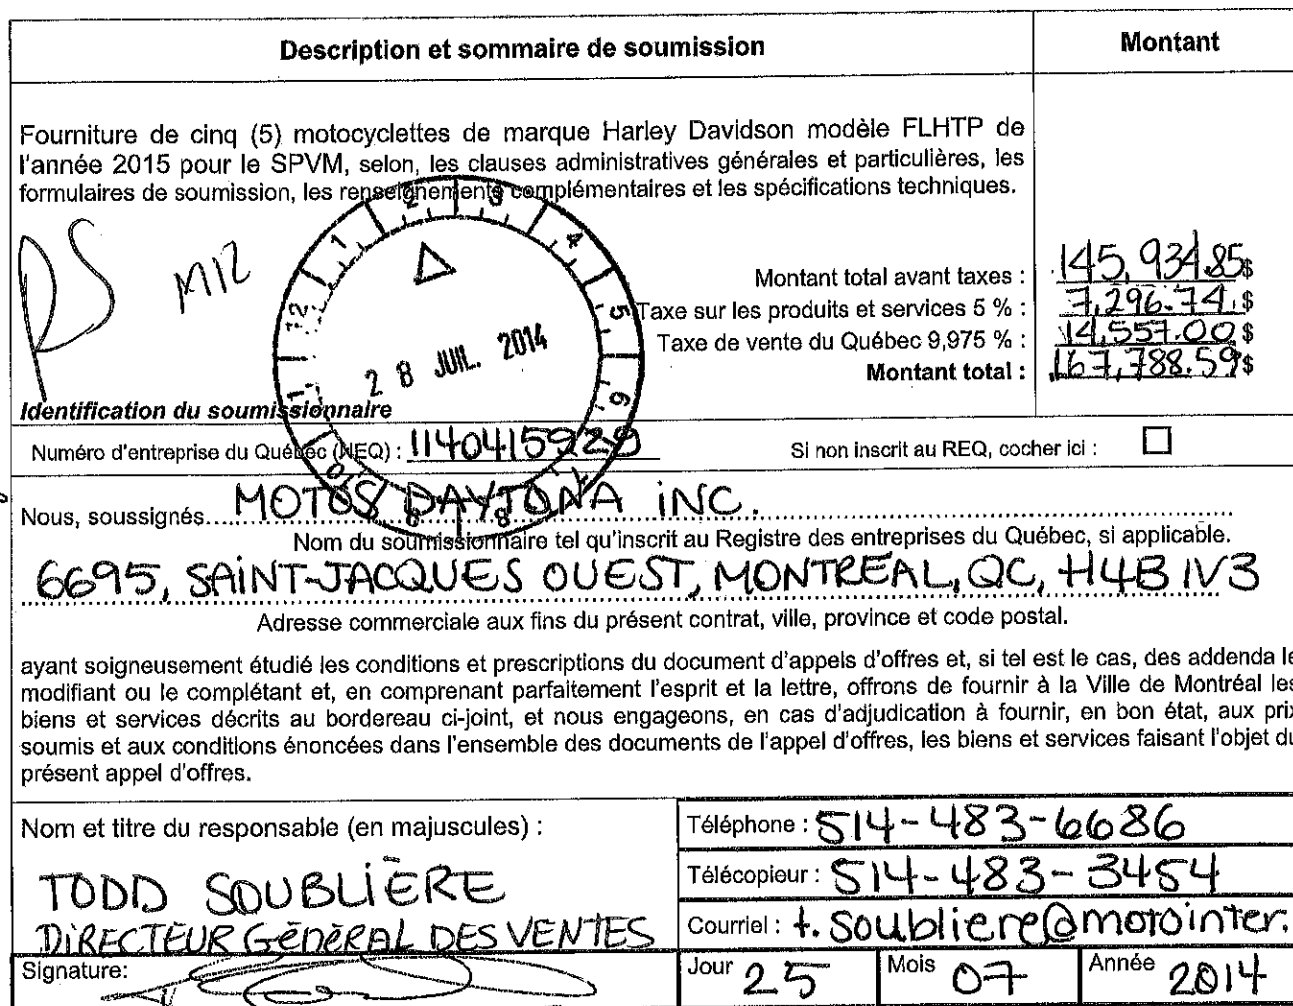 Description et sommaire de soumission
Montant
Fourniture de cinq (5) motocyclettes de marque Harley Davidson modèle FLHTP de
l'année 2015 pour le SPVM, selon, les clauses administratives générales et particulières, les
formulaires de soumission, les renseignements complémentaires et les spécifications techniques.
28 JUIL. 2014
Montant total avant taxes : 145,934.85$
Taxe sur les produits et services 5 % : 7,296.74$
Taxe de vente du Québec 9,975 % : 14,557.00$
Montant total : 167,788.59$
Identification du soumissionnaire
Numéro d'entreprise du Québec (NEQ) : 1140415929
Si non inscrit au REQ, cocher ici :
Nous, soussignés MOTOS DAYTONA INC.
Nom du soumissionnaire tel qu'inscrit au Registre des entreprises du Québec, si applicable.
6695, SAINT-JACQUES OUEST, MONTREAL, QC, H4B 1V3
Adresse commerciale aux fins du présent contrat, ville, province et code postal.
ayant soigneusement étudié les conditions et prescriptions du document d'appels d'offres et, si tel est le cas, des addenda le
modifiant ou le complétant et, en comprenant parfaitement l'esprit et la lettre, offrons de fournir à la Ville de Montréal les
biens et services décrits au bordereau ci-joint, et nous engageons, en cas d'adjudication à fournir, en bon état, aux prix
soumis et aux conditions énoncées dans l'ensemble des documents de l'appel d'offres, les biens et services faisant l'objet du
présent appel d'offres.
Nom et titre du responsable (en majuscules) :
TODD SOUBLIÈRE
DIRECTEUR GÉNÉRAL DES VENTES
Téléphone : 514-483-6686
Télécopieur : 514-483-3454
Courriel : t.soubliere@motointer.
Signature:
Jour 25
Mois 07
Année 2014